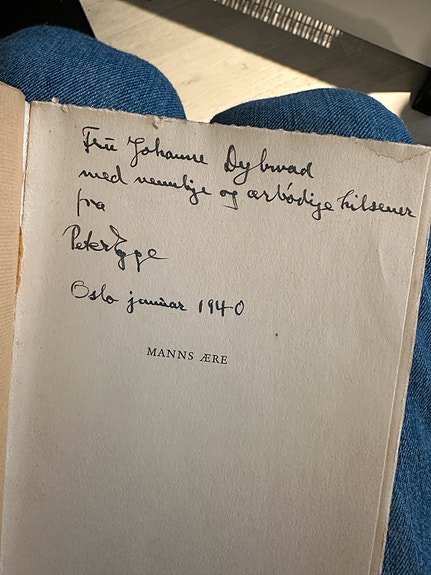 Fru Johanne Dybwad
med vennlige og ærbödige hilsener
fra
Peter Egge
Oslo januar 1940
MANNS ÆRE